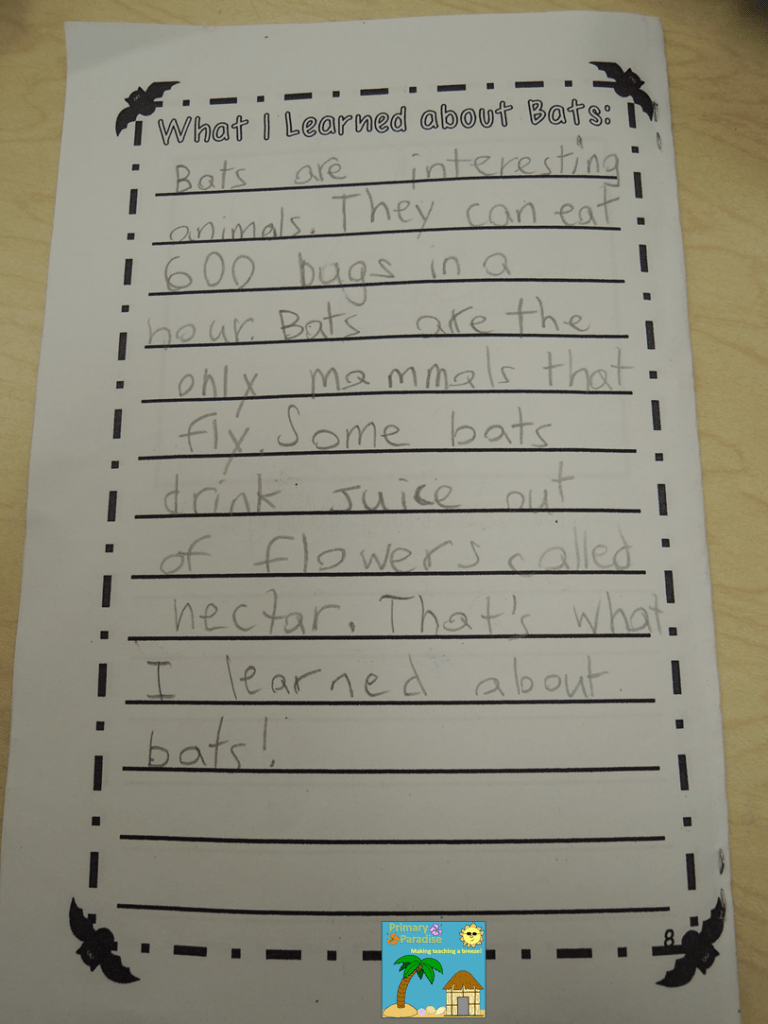 What I Learned about Bats:
Bats are interesting
animals. They can eat
600 bugs in a
hour. Bats are the
only mammals that
fly. Some bats
drink juice out
of flowers called
nectar. That's what
I learned about
bats!
8
Primary
Paradise
Making teaching a breeze!